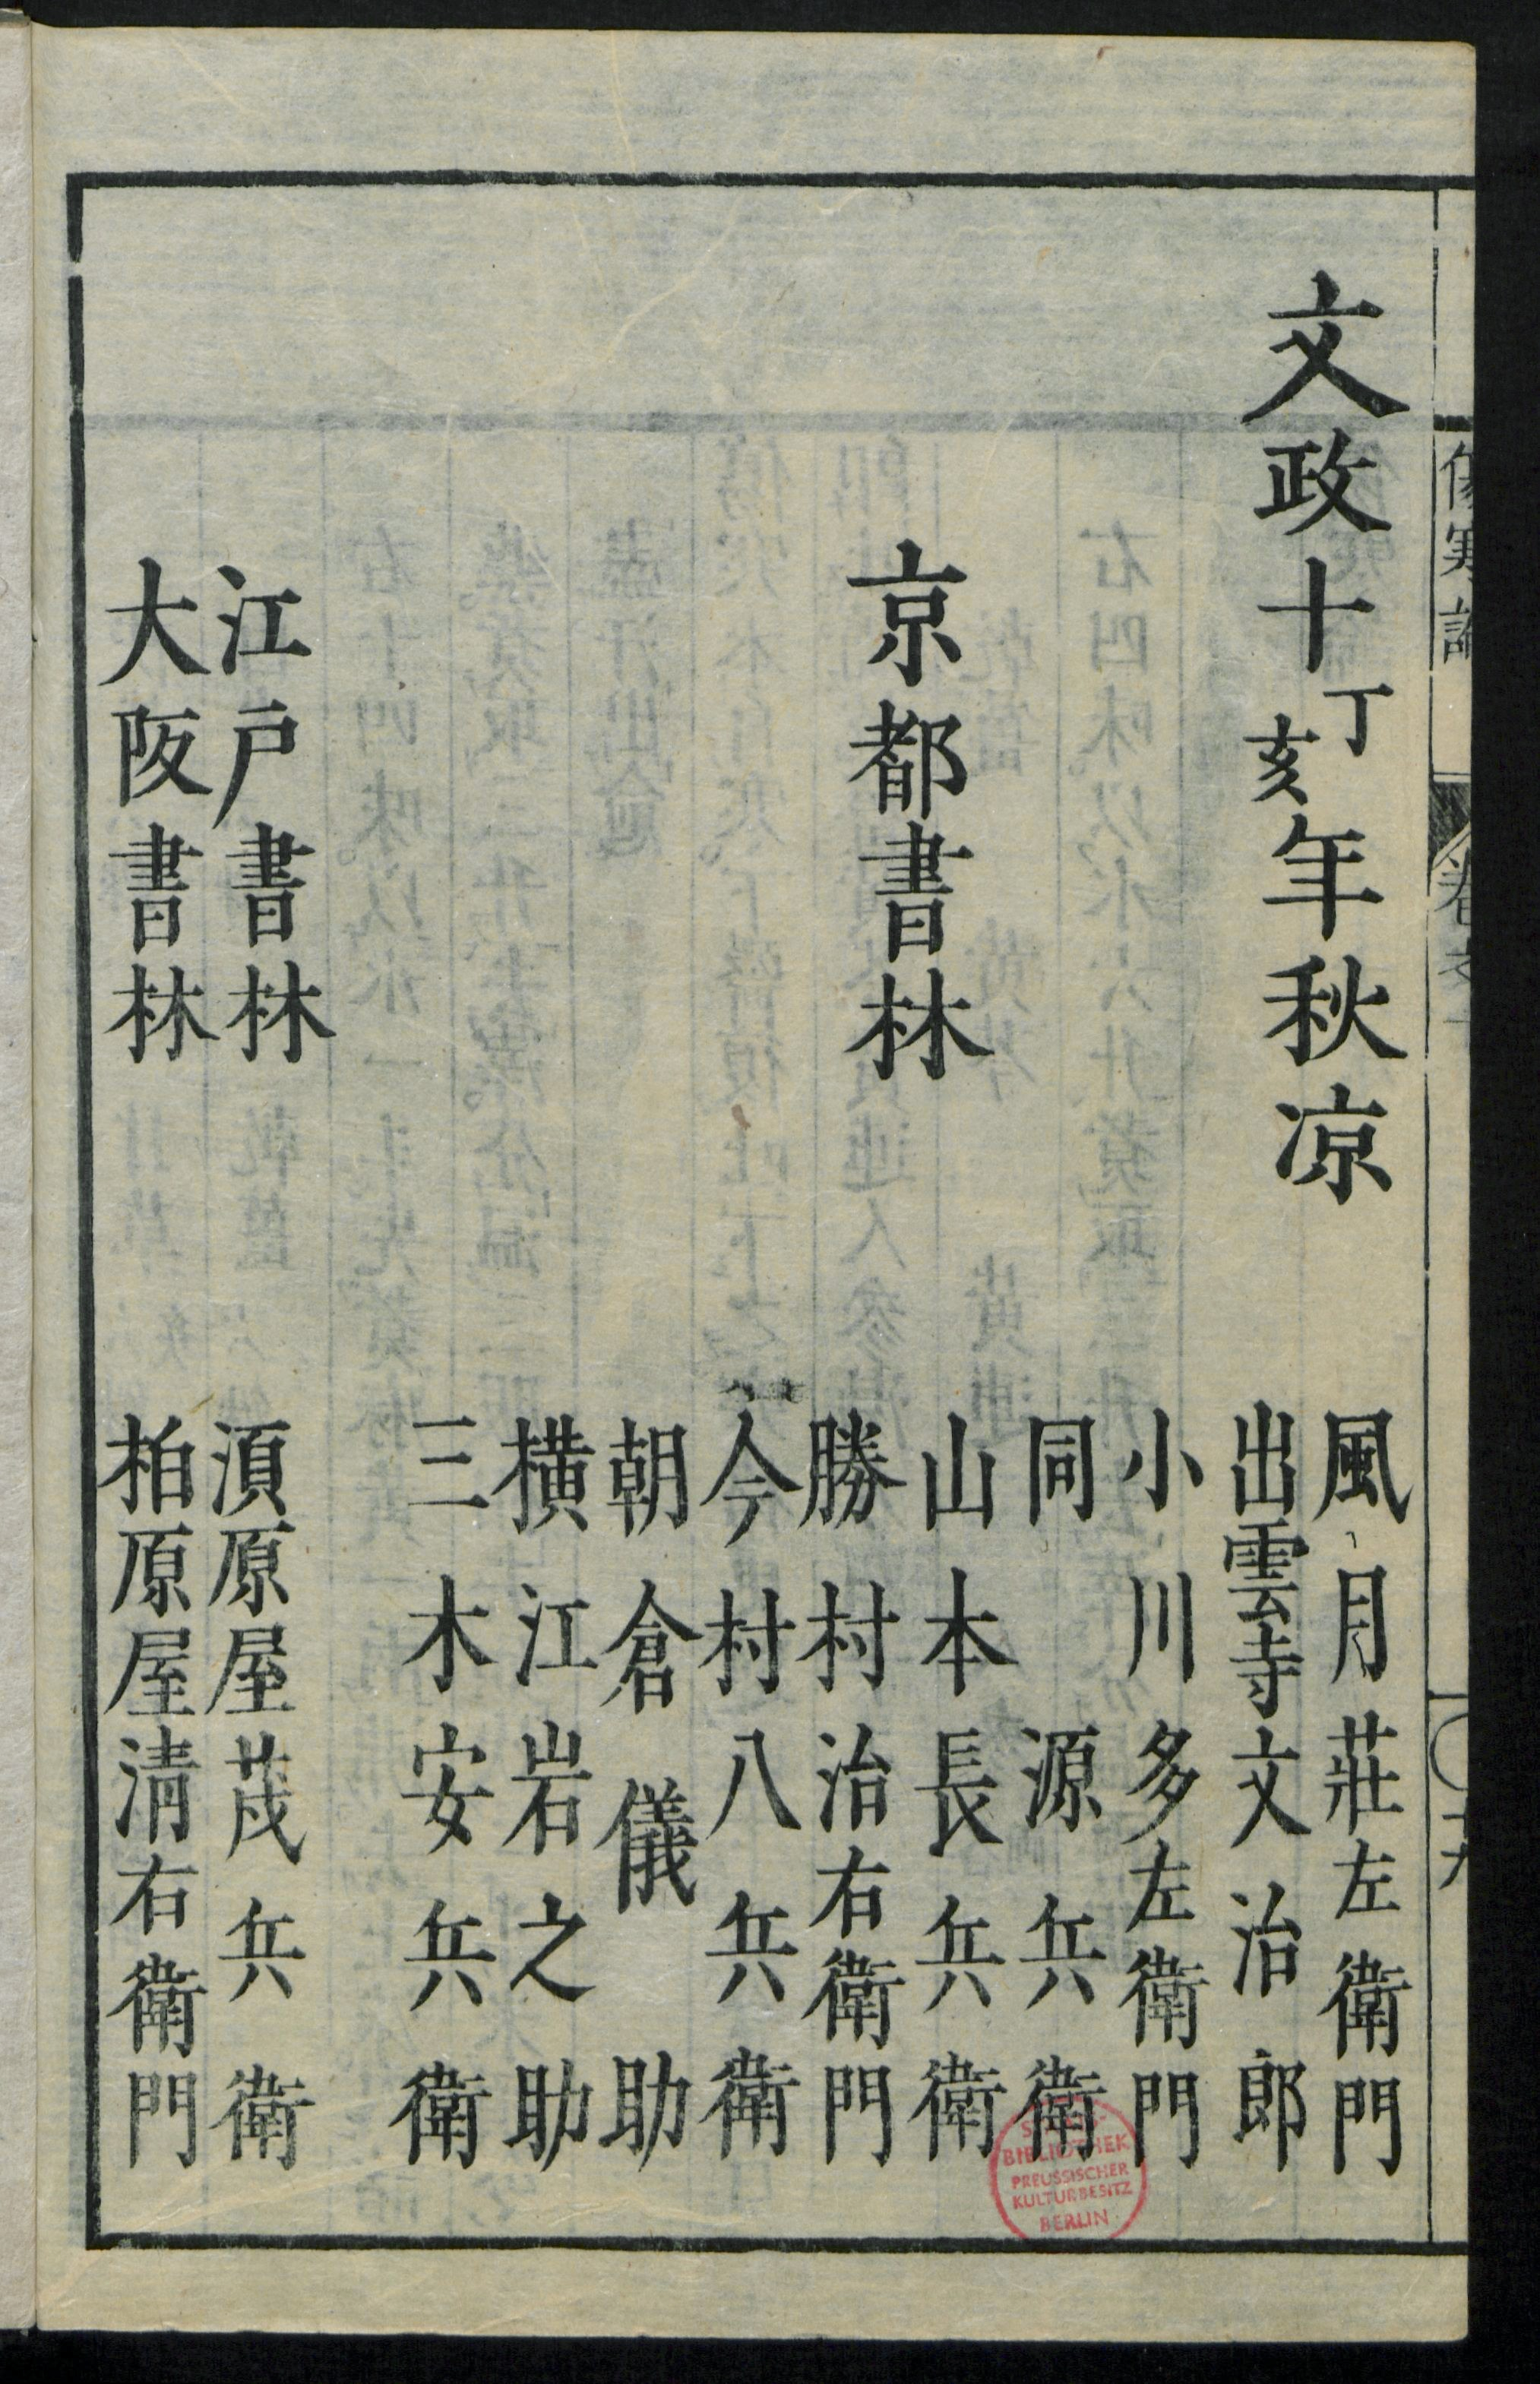 傷寒論
文政十丁亥年秋凉
京都書林
風月莊左衛門
出雲寺文治郎
小川多左衛門
同源兵衛
山本長兵衛
勝村治右衛門
今村八兵衛
朝倉儀助
橫江岩之助
三木安兵衛
江戸書林
須原屋茂兵衛
大阪書林
柏原屋淸右衛門
BIBLIOTHEK
PREUSSISCHER
KULTURBESITZ
BERLIN